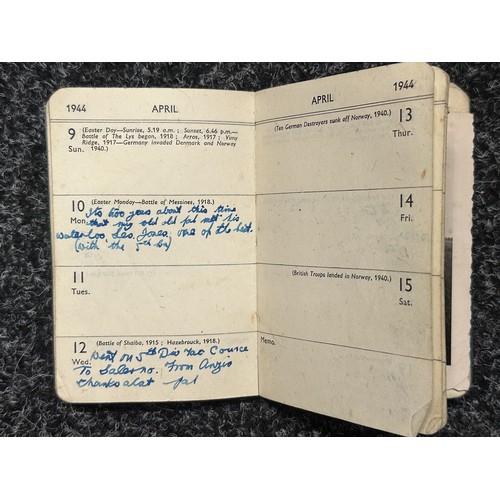 1944 APRIL
9 (Easter Day—Sunrise, 5.19 a.m.; Sunset, 6.46 p.m.—
Battle of The Lys began, 1918; Arras, 1917; Vimy
Ridge, 1917—Germany invaded Denmark and Norway
Sun. 1940.)
10 (Easter Monday—Battle of Messines, 1918.)
Its two years about this time
Mon. that my old pal met his
Waterloo, Les. Jones, one of the best.
(with the 5th Bn)
11
Tues.
12 (Battle of Shaiba, 1915; Hazebrouck, 1918.)
Wed. Went on 5th Div Tac Course
To Salerno. From Anzio
thanks alot pal
APRIL 1944
(Ten German Destroyers sunk off Norway, 1940.) 13
Thur.
14
Fri.
(British Troops landed in Norway, 1940.) 15
Sat.
Memo.